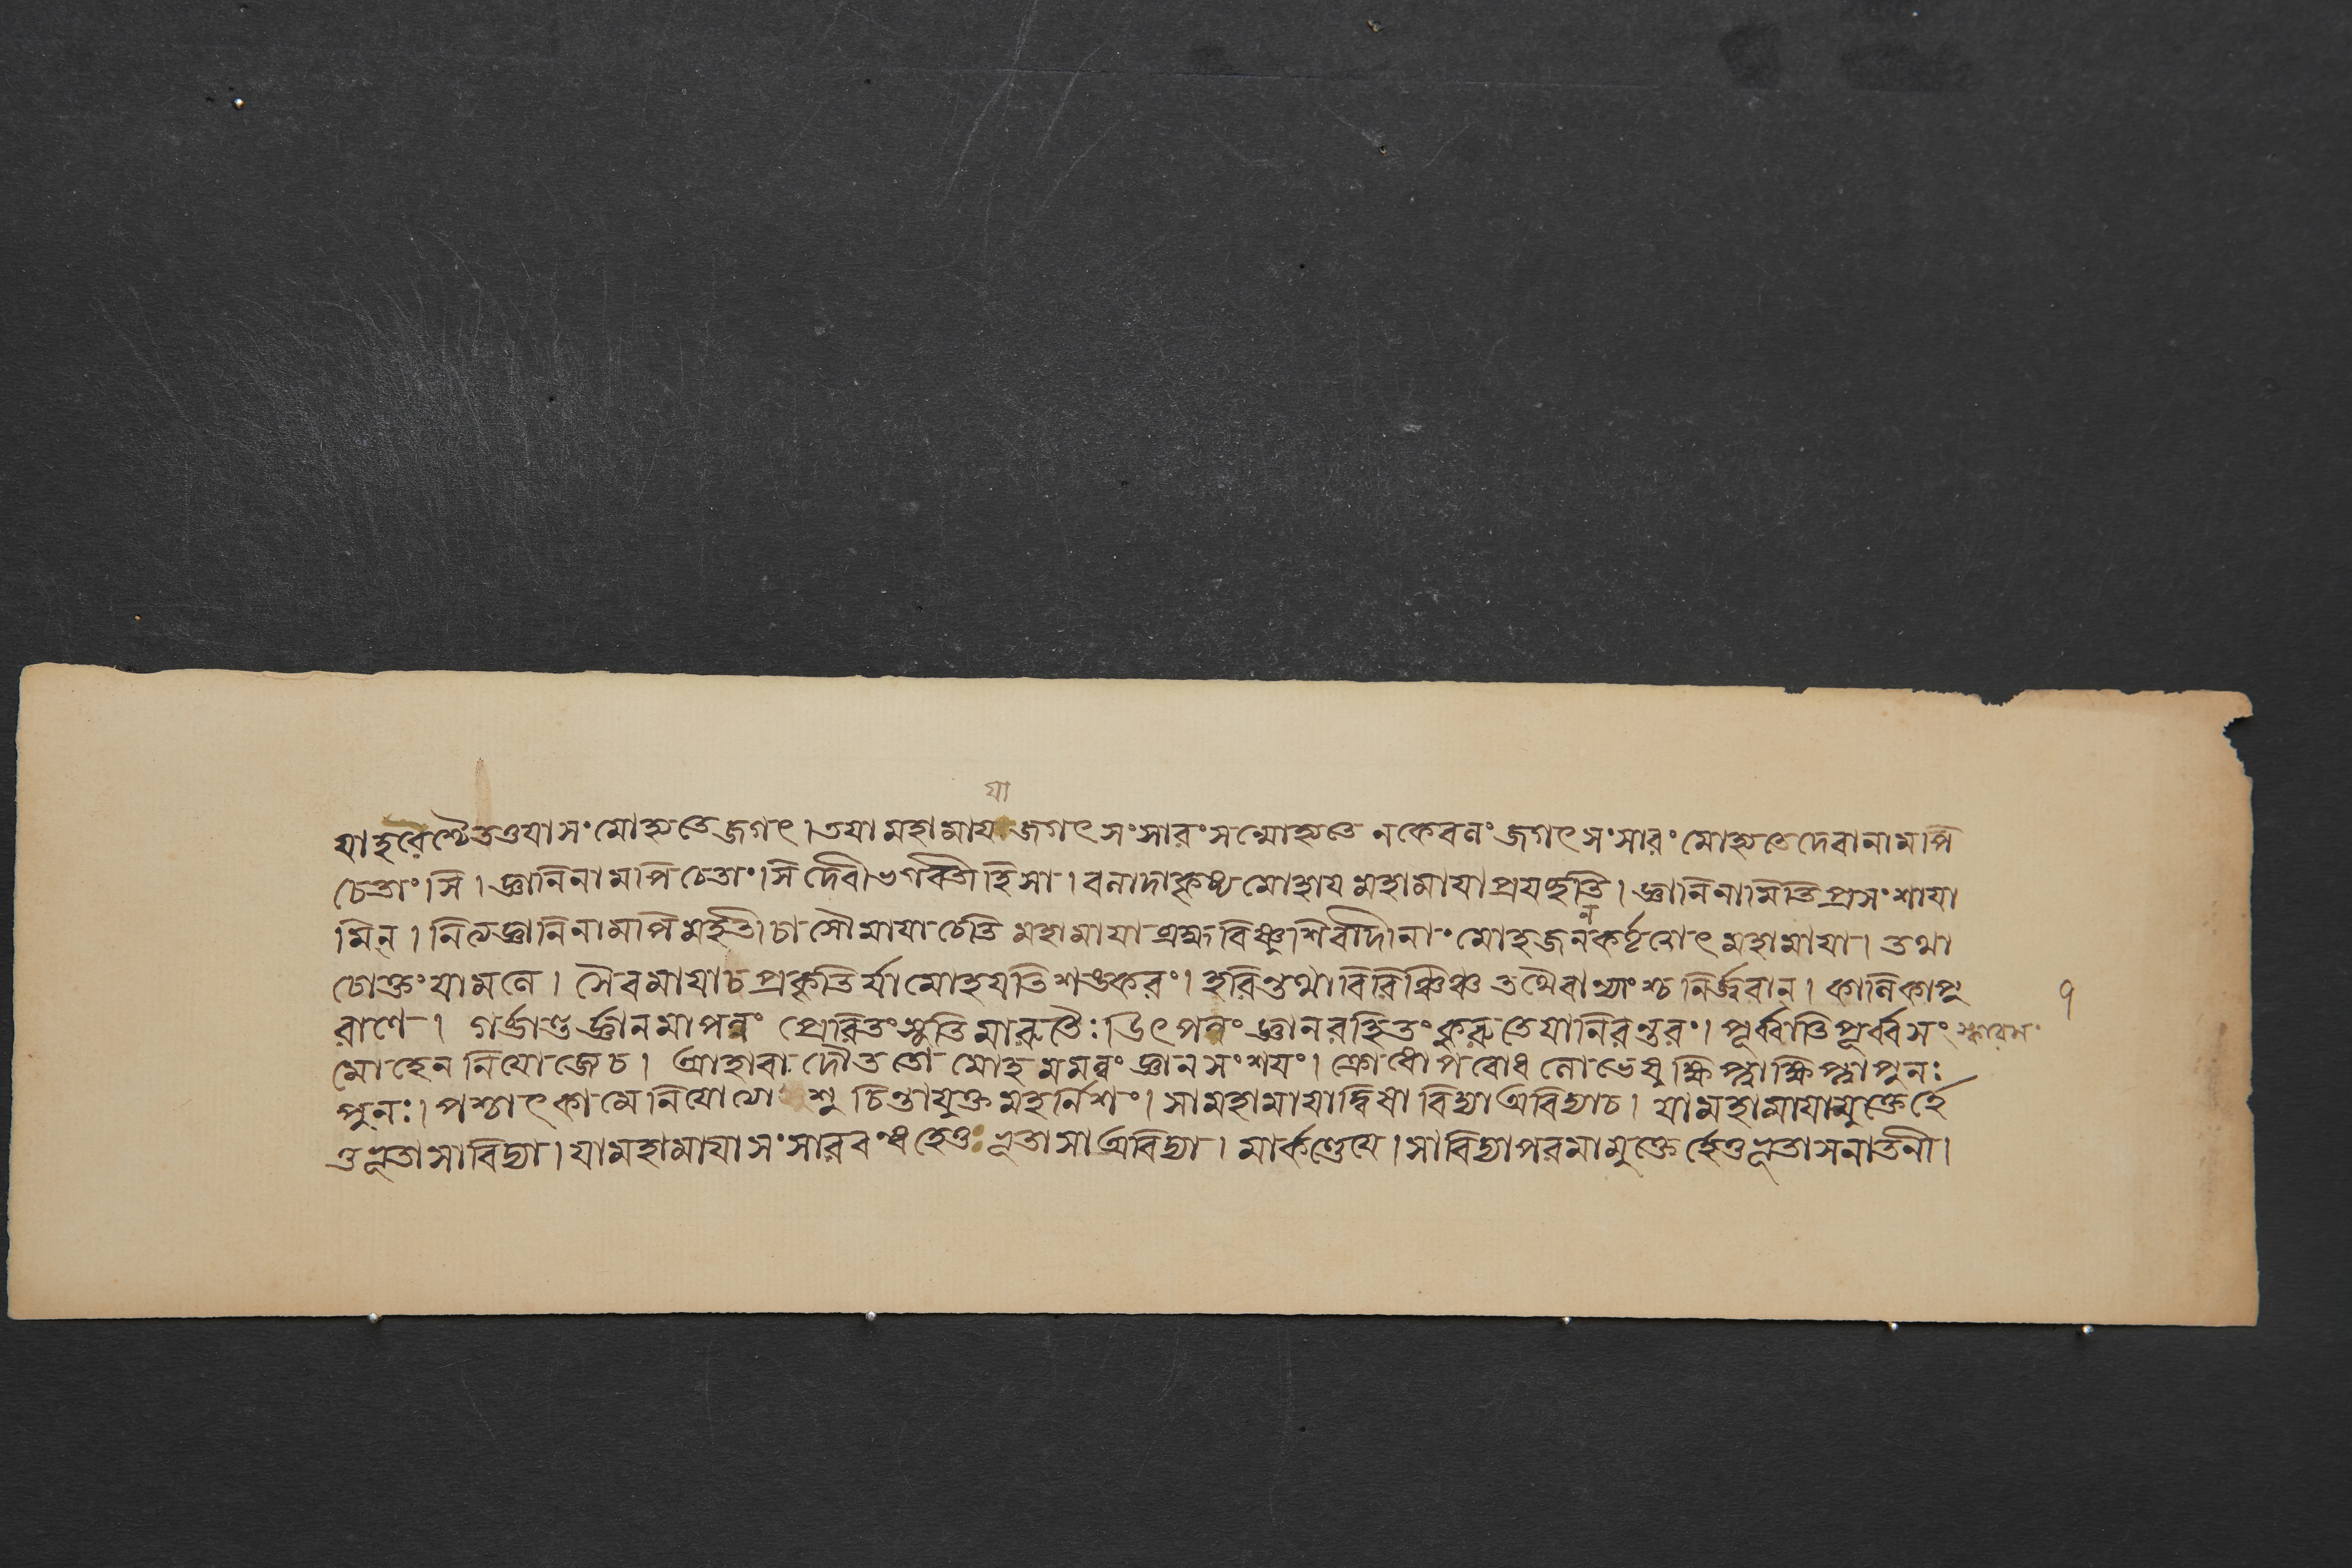 যা
যাহরেশ্চৈতত্তযাসংমোহ্যতেজগৎ।তযামহামায জগৎসংসারংসন্মোহ্যতে নকেবলং জগৎসংসারং মোহ্যতেদেবানামপি
চেতাংসি। জ্ঞানিনামপিচেতাংসিদেবীভগবতীহিসা। বলাদাকৃষ্যমোহাযমহামাযাপ্রযচ্ছতি। জ্ঞানিনামিতিপ্রসংশাযা
ন
মিন্। নিত্যজ্ঞানিনামপিমহতী চা সৌমাযাচেতি মহামাযা ব্রহ্মবিষ্ণুশিবাদীনাং মোহজনকর্তৃত্বাৎ মহামাযা। তথা
চোক্তংযামলে। সৈবমাযাচপ্রকৃতির্যামোহযতিশঙকরং। হরিন্তথাবিরিঞ্চিঞ্চ তথৈবান্যাংশ্চ নির্জ্জরান্। কালিকাপু
৭
রাণে। গর্ব্ভান্তর্জ্ঞানমাপন্নং প্রেরিতংসূতিমারুতৈঃ। উৎপন্নং জ্ঞানরহিতংকুরুতেযানিরন্তরং। পূর্ব্বাতিপূর্ব্বসং স্কারসং
মোহেন নিযোজেচ। আহারাদৌততো মোহমমত্বং জ্ঞানসংশযং। ক্রোধোপরোধলোভেষুক্ষিপ্ত্বাক্ষিপ্ত্বাপুনঃ
পুনঃ। পশ্চাৎকামেনিযোগ্যাশু চিন্তাযুক্তমহর্নিশং। সামহামাযাদ্বিধা বিদ্যাঅবিদ্যাচ। যামহামাযামুক্তের্হে
তুভূতাসাবিদ্যা। যামহামাযাসংসারবন্ধহেতু ভূতাসাঅবিদ্যা। মার্কণ্ডেযে। সাবিদ্যাপরমামুক্তের্হেতুভূতাসনাতনী।